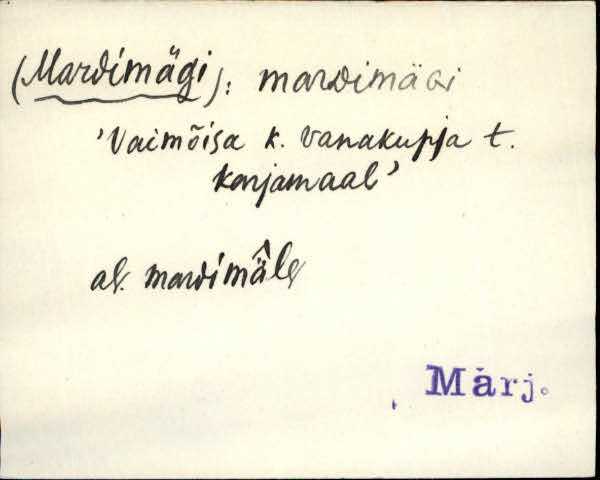 (Mardimägi): mardimäGi
'Vaimõisa k. Vanakupja t.
karjamaal'
al. mardimä̂le
Märj.